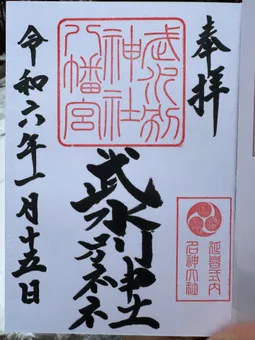 奉拝
武水別神社
八幡宮
武水別神社
延喜式内
名神大社
令和六年一月十五日